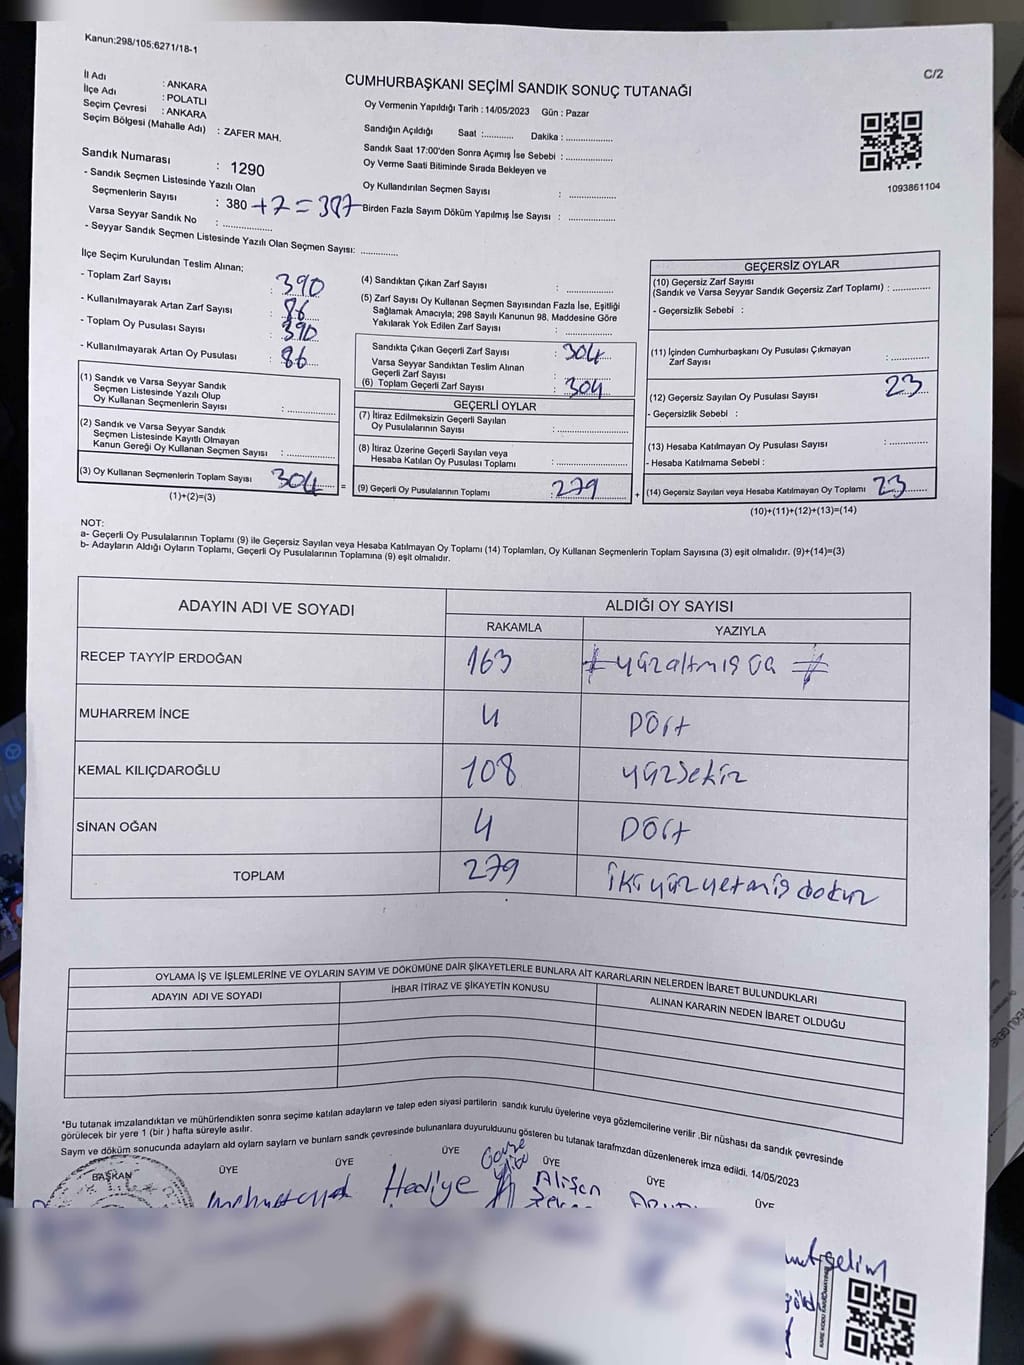 Kanun:298/105;6271/18-1
C/2
CUMHURBAŞKANI SEÇİMİ SANDIK SONUÇ TUTANAĞI
İl Adı : ANKARA
İlçe Adı : POLATLI
Seçim Çevresi : ANKARA
Seçim Bölgesi (Mahalle Adı) : ZAFER MAH.
Oy Vermenin Yapıldığı Tarih : 14/05/2023 Gün : Pazar
Sandığın Açıldığı Saat :........... Dakika :..............
Sandık Saat 17:00'den Sonra Açımış İse Sebebi :..............
Oy Verme Saati Bitiminde Sırada Bekleyen ve
Oy Kullandırılan Seçmen Sayısı : ..............
Birden Fazla Sayım Döküm Yapılmış İse Sayısı : ..............
1093861104
Sandık Numarası : 1290
- Sandık Seçmen Listesinde Yazılı Olan
Seçmenlerin Sayısı : 380 +7=387
Varsa Seyyar Sandık No : ..............
- Seyyar Sandık Seçmen Listesinde Yazılı Olan Seçmen Sayısı: ..............
İlçe Seçim Kurulundan Teslim Alınan;
- Toplam Zarf Sayısı : 390
- Kullanılmayarak Artan Zarf Sayısı : 86
- Toplam Oy Pusulası Sayısı : 390
- Kullanılmayarak Artan Oy Pusulası : 86
(1) Sandık ve Varsa Seyyar Sandık
Seçmen Listesinde Yazılı Olup
Oy Kullanan Seçmenlerin Sayısı : ..............
(2) Sandık ve Varsa Seyyar Sandık
Seçmen Listesinde Kayıtlı Olmayan
Kanun Gereği Oy Kullanan Seçmen Sayısı : ..............
(3) Oy Kullanan Seçmenlerin Toplam Sayısı 304 =
(1)+(2)=(3)
(4) Sandıktan Çıkan Zarf Sayısı : ..............
(5) Zarf Sayısı Oy Kullanan Seçmen Sayısından Fazla İse, Eşitliği
Sağlamak Amacıyla; 298 Sayılı Kanunun 98. Maddesine Göre
Yakılarak Yok Edilen Zarf Sayısı : ..............
Sandıkta Çıkan Geçerli Zarf Sayısı : 304
Varsa Seyyar Sandıktan Teslim Alınan
Geçerli Zarf Sayısı : ..............
(6) Toplam Geçerli Zarf Sayısı : 304
GEÇERLİ OYLAR
(7) İtiraz Edilmeksizin Geçerli Sayılan
Oy Pusulalarının Sayısı : ..............
(8) İtiraz Üzerine Geçerli Sayılan veya
Hesaba Katılan Oy Pusulası Toplamı : ..............
(9) Geçerli Oy Pusulalarının Toplamı : 279 +
GEÇERSİZ OYLAR
(10) Geçersiz Zarf Sayısı
(Sandık ve Varsa Seyyar Sandık Geçersiz Zarf Toplamı) : ..............
- Geçersizlik Sebebi :
(11) İçinden Cumhurbaşkanı Oy Pusulası Çıkmayan
Zarf Sayısı : ..............
(12) Geçersiz Sayılan Oy Pusulası Sayısı 23
- Geçersizlik Sebebi :
(13) Hesaba Katılmayan Oy Pusulası Sayısı : ..............
- Hesaba Katılmama Sebebi :
(14) Geçersiz Sayılan veya Hesaba Katılmayan Oy Toplamı 23
(10)+(11)+(12)+(13)=(14)
NOT:
a- Geçerli Oy Pusulalarının Toplamı (9) ile Geçersiz Sayılan veya Hesaba Katılmayan Oy Toplamı (14) Toplamları, Oy Kullanan Seçmenlerin Toplam Sayısına (3) eşit olmalıdır. (9)+(14)=(3)
b- Adayların Aldığı Oyların Toplamı, Geçerli Oy Pusulalarının Toplamına (9) eşit olmalıdır.
ADAYIN ADI VE SOYADI ALDIĞI OY SAYISI
RAKAMLA YAZIYLA
RECEP TAYYİP ERDOĞAN 163 # yüzaltmış üç #
MUHARREM İNCE 4 Dört
KEMAL KILIÇDAROĞLU 108 yüzsekiz
SİNAN OĞAN 4 Dört
TOPLAM 279 ikiyüzyetmiş dokuz
OYLAMA İŞ VE İŞLEMLERİNE VE OYLARIN SAYIM VE DÖKÜMÜNE DAİR ŞİKAYETLERLE BUNLARA AİT KARARLARIN NELERDEN İBARET BULUNDUKLARI
ADAYIN ADI VE SOYADI İHBAR İTİRAZ VE ŞİKAYETİN KONUSU ALINAN KARARIN NEDEN İBARET OLDUĞU
*Bu tutanak imzalandıktan ve mühürlendikten sonra seçime katılan adayların ve talep eden siyasi partilerin sandık kurulu üyelerine veya gözlemcilerine verilir .Bir nüshası da sandık çevresinde
görülecek bir yere 1 (bir ) hafta süreyle asılır.
Sayım ve döküm sonucunda adayların ald oyların sayları ve bunlam sandk çevresinde bulunanlara duyurulduunu gösteren bu tutanak tarafmzdan düzenlenerek imza edildi. 14/05/2023
BAŞKAN ÜYE ÜYE ÜYE ÜYE ÜYE ÜYE
Hediye Alişen